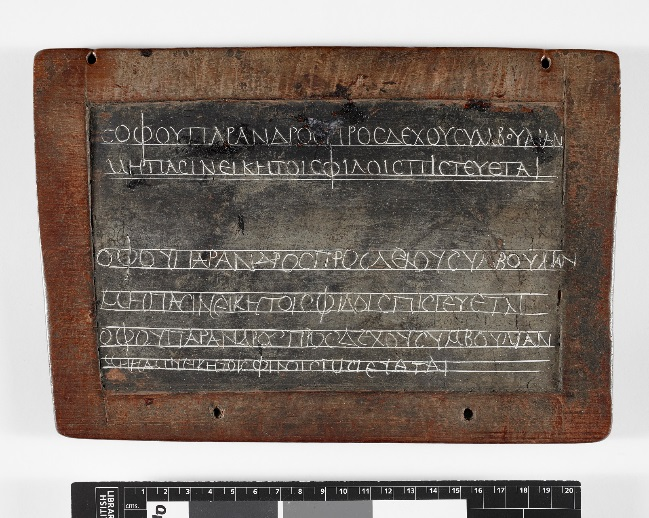 ϹΟΦΟΥΠΑΡΑΝΔΡΟϹΠΡΟϹΔΕΧΟΥϹΥΜΒΟΥΛΙΑΝ
ΜΗΠΑϹΙΝΕΙΚΗΤΟΙϹΦΙΛΟΙϹΠΙϹΤΕΥΕΤΑΙ
ΟΦΟΥΠΑΡΑΝΔΡΟϹΠΡΟϹΔΕΧΟΥϹΥΜΒΟΥΛΙΑΝ
ΜΗΠΑϹΙΝΕΙΚΗΤΟΙϹΦΙΛΟΙϹΠΙϹΤΕΥΕΤΑΙ
ΟΦΟΥΠΑΡΑΝΔΡΟϹΠΡΟϹΔΕΧΟΥϹΥΜΒΟΥΛΙΑΝ
ΜΗΠΑϹΙΝΕΙΚΗΤΟΙϹΦΙΛΟΙϹΠΙϹΤΕΥΕΤΑΙ
cms. 1 2 3 4 5 6 7 8 9 10 11 12 13 14 15 16 17 18 19 20
BRITISH
LIBRARY